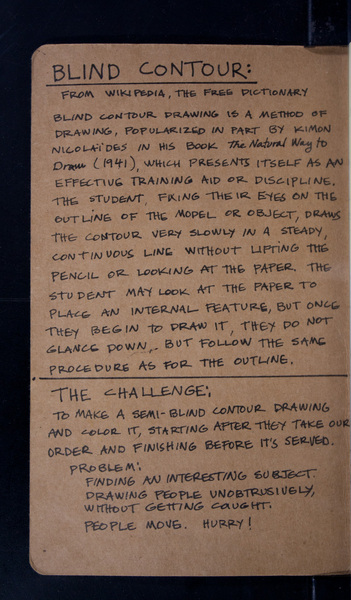 BLIND CONTOUR:
FROM WIKIPEDIA, THE FREE DICTIONARY
BLIND CONTOUR DRAWING IS A METHOD OF
DRAWING, POPULARIZED IN PART BY KIMON
NICOLAÏDES IN HIS BOOK The Natural Way to
Draw (1941), WHICH PRESENTS ITSELF AS AN
EFFECTIVE TRAINING AID OR DISCIPLINE.
THE STUDENT, FIXING THEIR EYES ON THE
OUTLINE OF THE MODEL OR OBJECT, DRAWS
THE CONTOUR VERY SLOWLY IN A STEADY,
CONTINUOUS LINE WITHOUT LIFTING THE
PENCIL OR LOOKING AT THE PAPER. THE
STUDENT MAY LOOK AT THE PAPER TO
PLACE AN INTERNAL FEATURE, BUT ONCE
THEY BEGIN TO DRAW IT, THEY DO NOT
GLANCE DOWN,. BUT FOLLOW THE SAME
PROCEDURE AS FOR THE OUTLINE.
THE CHALLENGE:
TO MAKE A SEMI-BLIND CONTOUR DRAWING
AND COLOR IT, STARTING AFTER THEY TAKE OUR
ORDER AND FINISHING BEFORE IT'S SERVED.
PROBLEM:
FINDING AN INTERESTING SUBJECT.
DRAWING PEOPLE UNOBTRUSIVELY,
WITHOUT GETTING CAUGHT.
PEOPLE MOVE. HURRY!